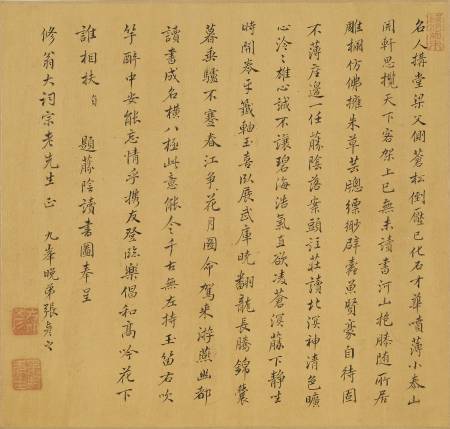 名人構堂梁父側蒼松倒壓已化石才華噴薄小泰山
開軒思攬天下客架上已無未讀書河山抱膝隨所居
雕欄仿佛擁朱草芸牕縹緲辟蠹魚賢豪自待固
不薄座邊一任藤陰落案頭注莊讀北溟神清色曠
心泠泠雄心誠不讓碧海浩氣直欲凌蒼溟藤下靜坐
時開卷牙籤軸玉喜臥展武庫曉翻龍長勝錦囊
暮奚驢不蹇春江爭花月圖命駕來游燕幽都
讀書成名橫八極此意能令千古無左持玉笛右吹
竽醉中安能忘情乎攜友登臨樂倡和高吟花下
誰相扶 題藤陰讀書圖奉呈
修翁大詞宗老先生正 九峯晚弟張